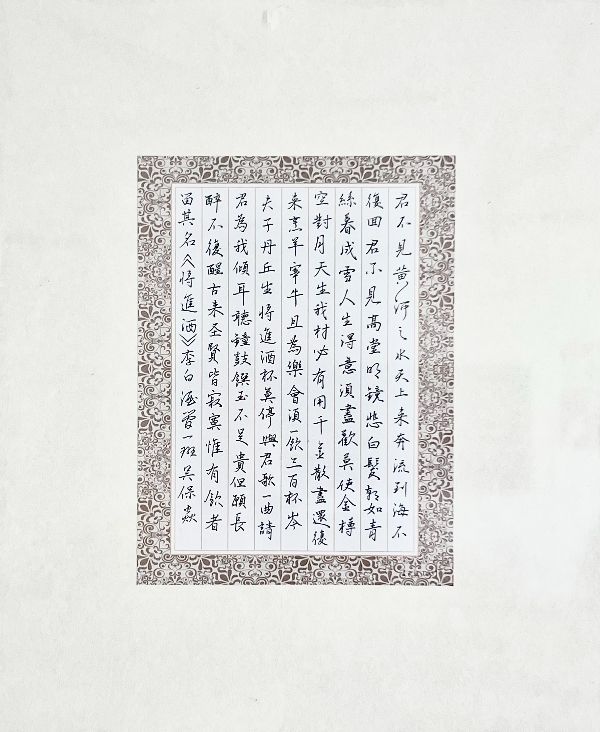 君不見黃河之水天上来奔流到海不
復回君不見高堂明镜悲白髮朝如青
絲暮成雪人生得意須盡歡莫使金樽
空對月天生我材必有用千金散盡還復
来烹羊宰牛且為樂會須一飲三百杯岑
夫子丹丘生將進酒杯莫停與君歌一曲請
君為我傾耳聽鐘鼓饌玉不足貴但願長
醉不復醒古来圣賢皆寂寞惟有飲者
留其名《將進酒》李白 一班吴保焱